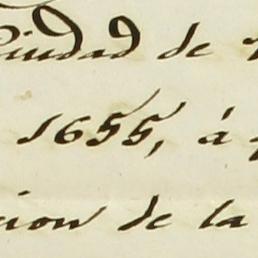 Ciudad de
1655, á
cion de la